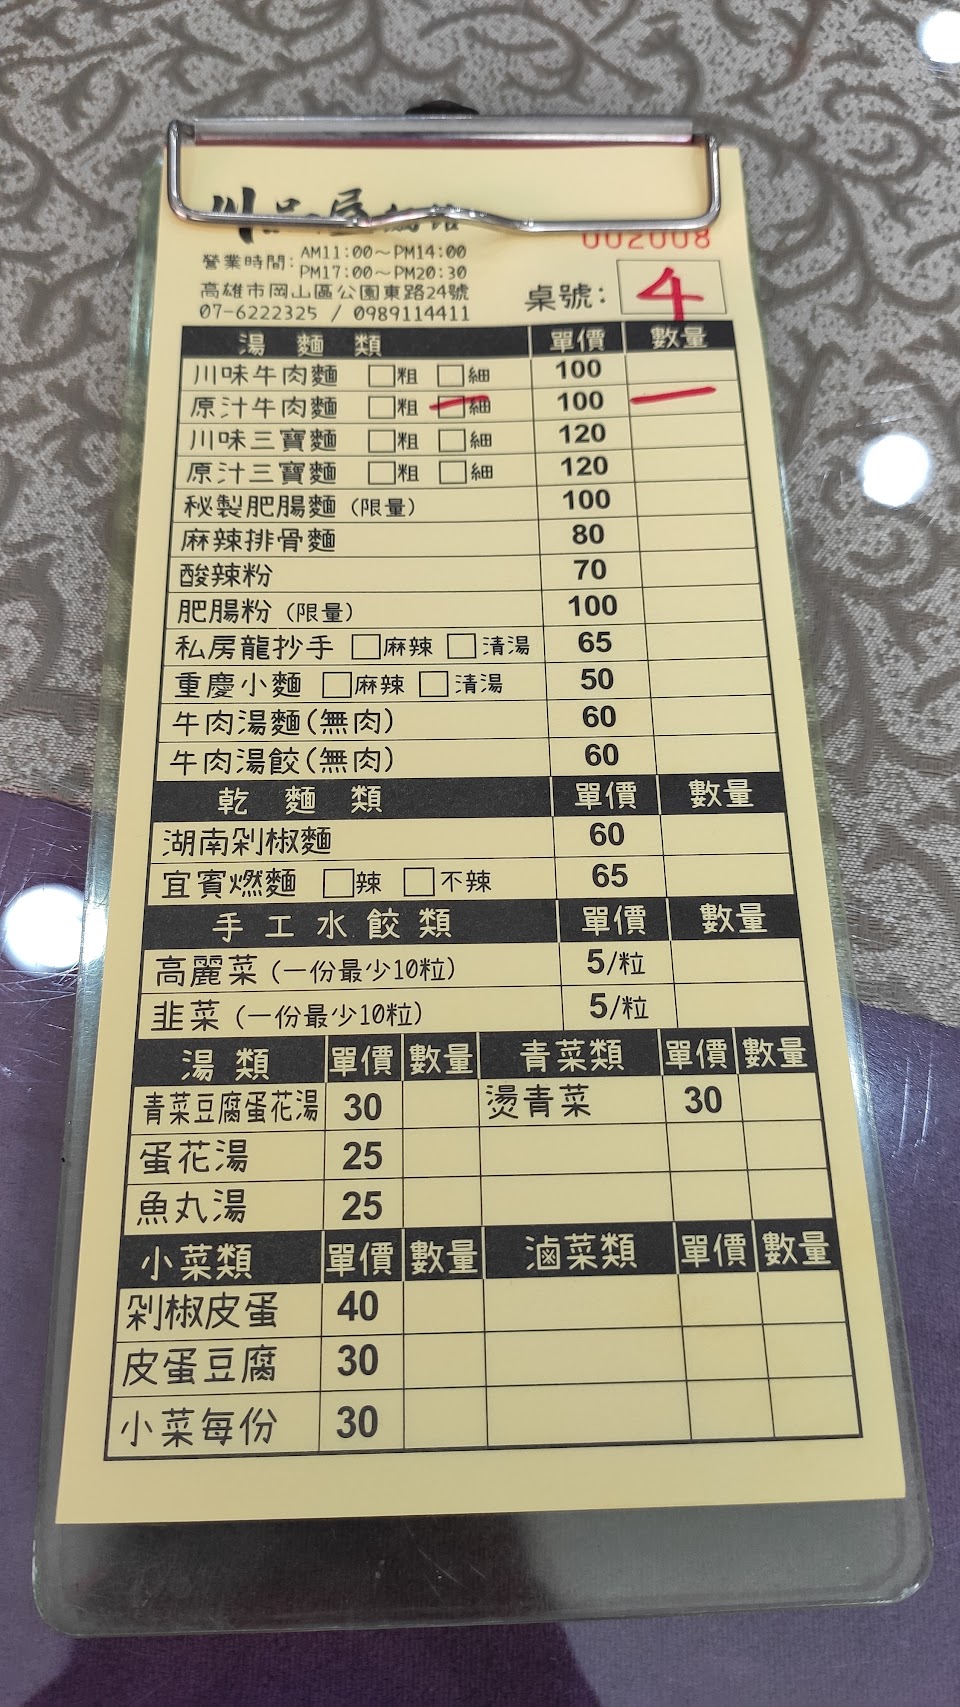 川品屋
002008
營業時間:AM11:00～PM14:00
PM17:00～PM20:30
高雄市岡山區公園東路24號
07-6222325 / 0989114411
桌號: 4
湯麵類 單價 數量
川味牛肉麵 □粗 □細 100
原汁牛肉麵 □粗 □細 100 一
川味三寶麵 □粗 □細 120
原汁三寶麵 □粗 □細 120
秘製肥腸麵(限量) 100
麻辣排骨麵 80
酸辣粉 70
肥腸粉(限量) 100
私房龍抄手 □麻辣 □清湯 65
重慶小麵 □麻辣 □清湯 50
牛肉湯麵(無肉) 60
牛肉湯餃(無肉) 60
乾麵類 單價 數量
湖南剁椒麵 60
宜賓燃麵 □辣 □不辣 65
手工水餃類 單價 數量
高麗菜(一份最少10粒) 5/粒
韭菜(一份最少10粒) 5/粒
湯類 單價 數量 青菜類 單價 數量
青菜豆腐蛋花湯 30 燙青菜 30
蛋花湯 25
魚丸湯 25
小菜類 單價 數量 滷菜類 單價 數量
剁椒皮蛋 40
皮蛋豆腐 30
小菜每份 30